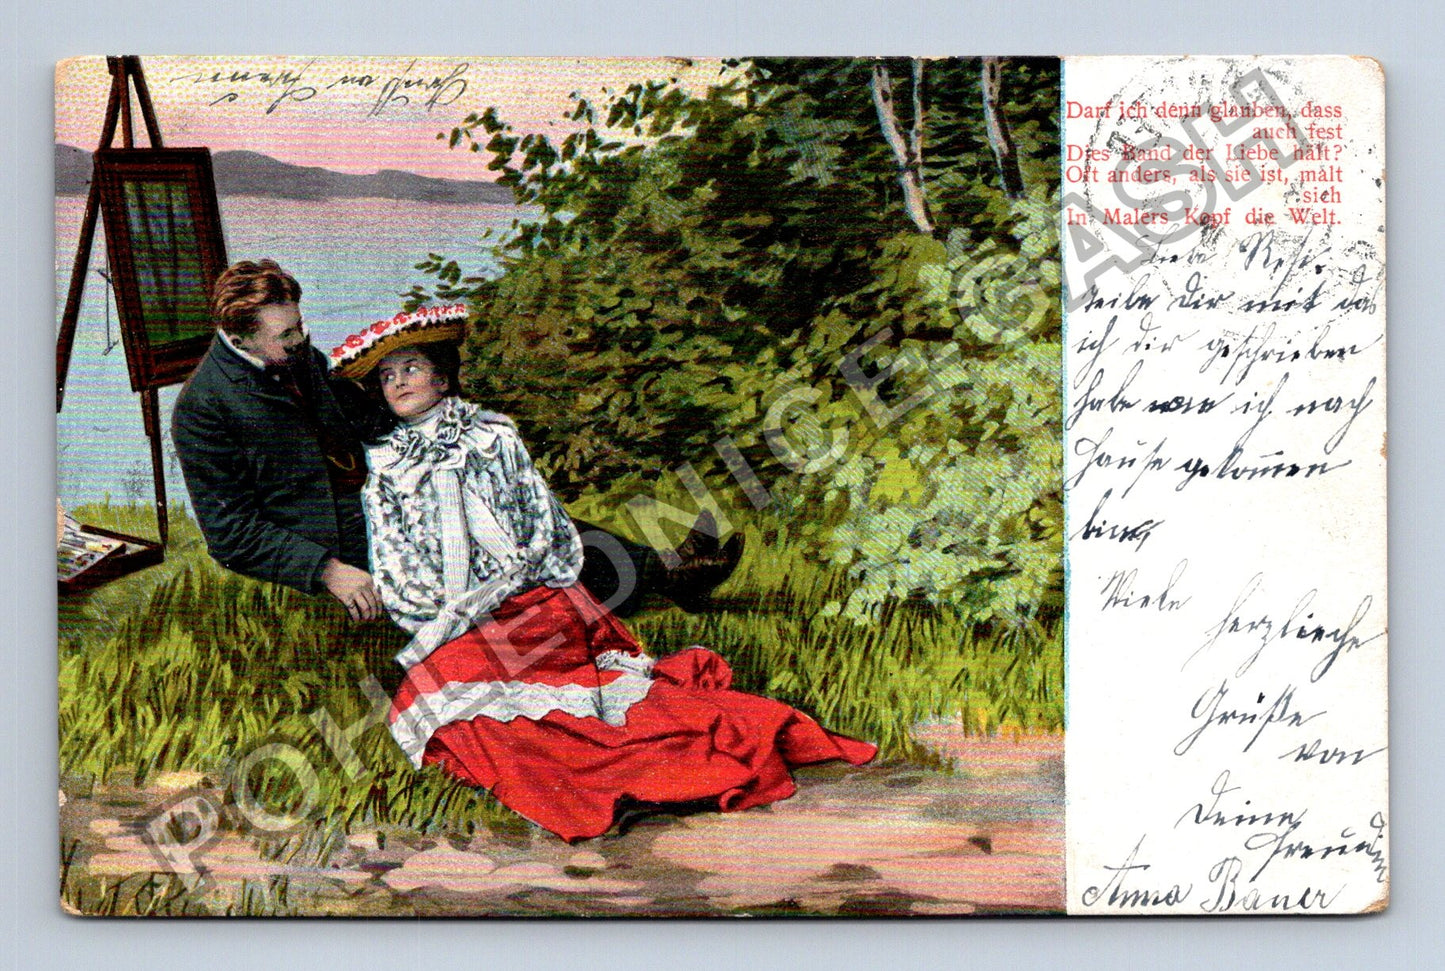 Darf ich denn glauben, dass
auch fest
Dies Band der Liebe hält?
Oft anders, als sie ist, malt
sich
In Malers Kopf die Welt.
Liebe Resi.
teile Dir mit das
ich dir geschrieben
habe wen ich nach
Hause gekommen
bin,
Viele
herzliche
Grüße
von
Deine
Freundin
Anna Bauer
Gruß von
POHLEDNICE-GASH